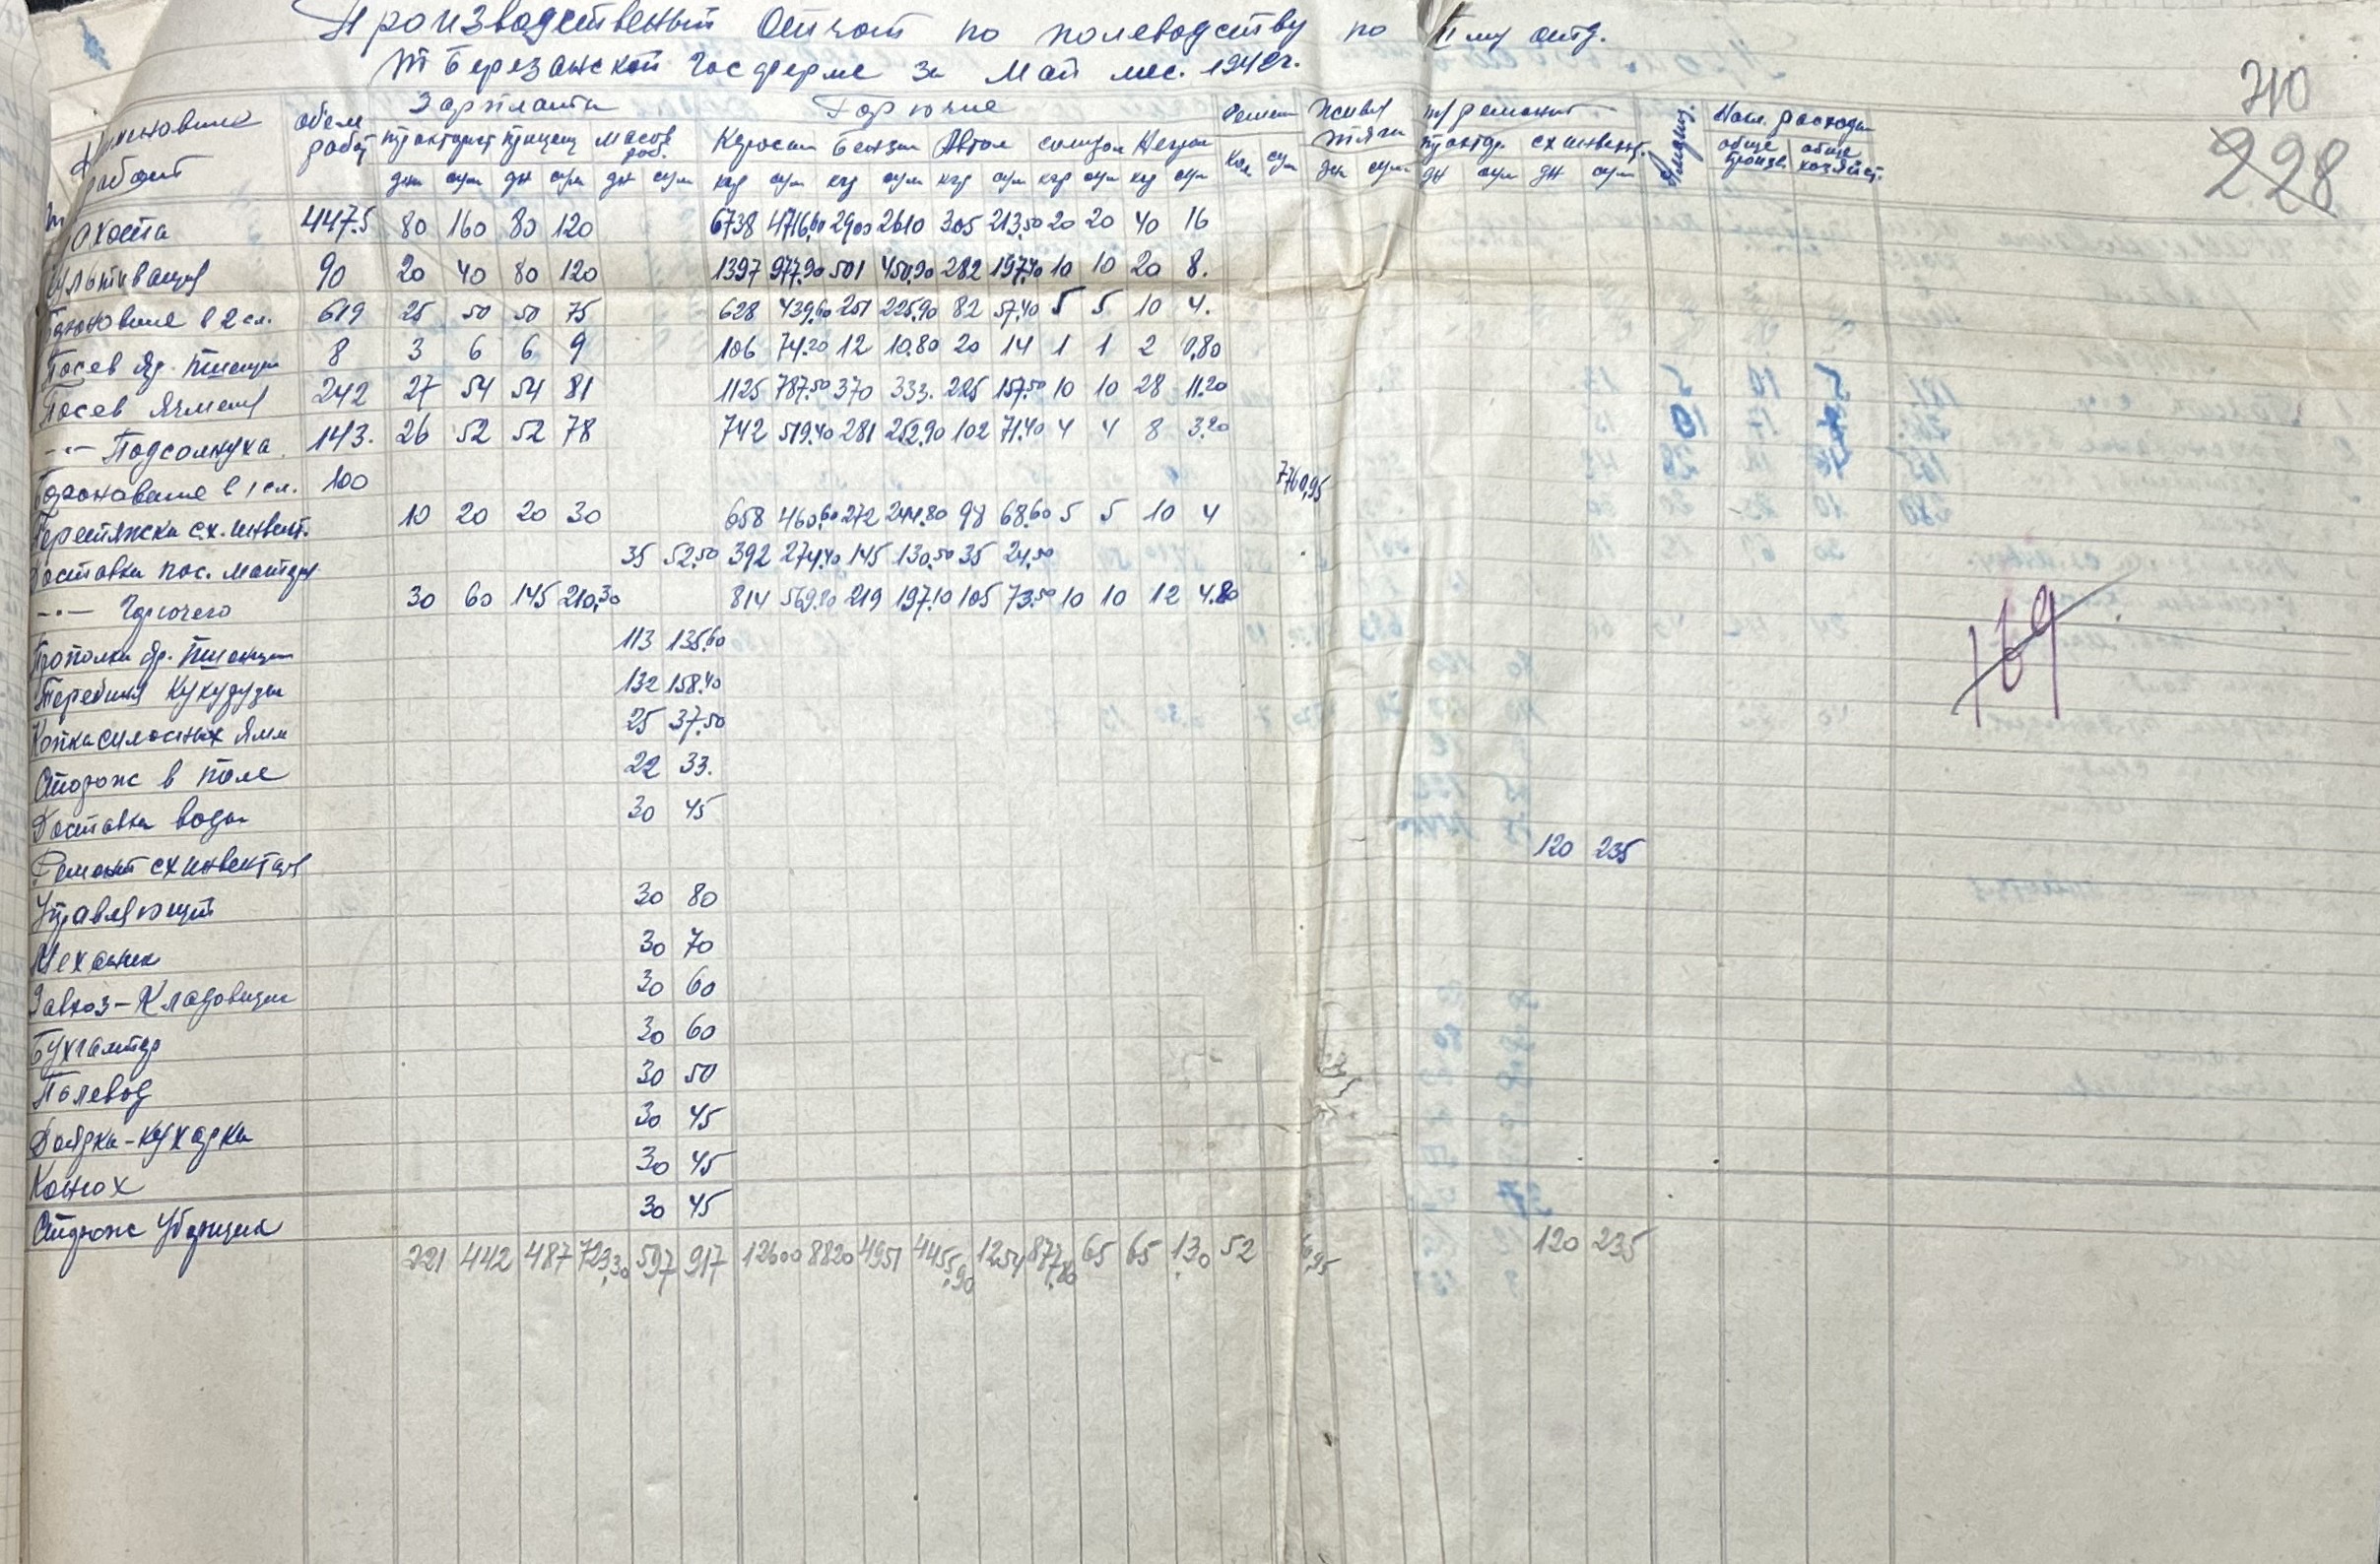 Производственый Отчот по полеводству по II му отд.
Т Березанской Госферме за Май мес. 1942г.
710
228
169
Наименование работ объем работ Зарплата Горючие Семена живая тяга т/ремонт Амортиз. Накл. расходы
тракторист прицепщ массов раб. Керосин Бензин Автол солидол Негрол трактор. сх инвент. обще произв. обще хозяйст.
дни сум дн сум дн сум кгр сум кгр сум кгр сум кгр сум кгр сум Кол сум дн сум дн сум дн сум
Пахота 447.5 80 160 80 120 6738 4716,60 2900 2610 305 213,50 20 20 40 16
Культивация 90 20 40 80 120 1397 977.90 501 450,90 282 197,40 10 10 20 8.
Боронование в 2 сл. 619 25 50 50 75 628 439,60 251 225,90 82 57,40 5 5 10 4.
Посев Яр. Пшеницы 8 3 6 6 9 106 74.20 12 10.80 20 14 1 1 2 0,80
Посев Ячменя 242 27 54 54 81 1125 787.50 370 333. 225 157.50 10 10 28 11.20
-"- Подсолнуха. 143. 26 52 52 78 742 519.40 281 252.90 102 71.40 4 4 8 3.20
Боронование в 1 сл. 100 7760,95
Перетяжка с.х. инвент. 10 20 20 30 658 460,60 272 244.80 98 68.60 5 5 10 4
Доставка пос. матер 35 52.50 392 274.40 145 130.50 35 24.50
-"- Горючего 30 60 145 210,30 814 569.80 219 197.10 105 73.50 10 10 12 4.80
Прополка Яр. Пшеницы 113 135,60
Теребиня Кукурузы 132 158.40
Копка силосных Ямм 25 37.50
Сторож в поле 22 33.
Доставка воды 30 45
Ремонт сх инвентаря 120 235
Управляющий 30 80
Механик 30 70
Завхоз-Кладовщик 30 60
Бухгалтер 30 60
Полевод 30 50
Доярка-кухарка 30 45
Конюх 30 45
Сторож Уборщик 30 45
221 442 487 723,30 597 917 12600 8820 4951 4455,90 1254 877.80 65 65 130 52 120 235